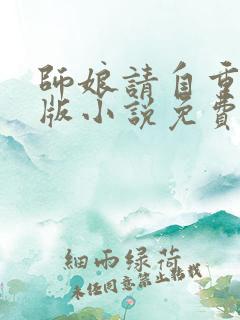 師娘請自重
版小說免費
細雨綠荷
未經同意禁止轉載